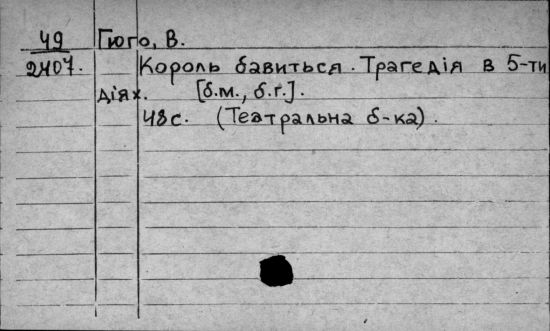 49 Гюго, В.
2407. Король бавиться. Трагедія в 5-ти
діях. [б.м., б.г.].
48 с. (Театральна б-ка).